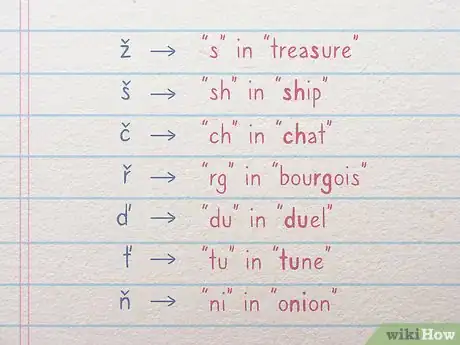 ž → "s" in "treasure"
š → "sh" in "ship"
č → "ch" in "chat"
ř → "rg" in "bourgois"
ď → "du" in "duel"
ť → "tu" in "tune"
ň → "ni" in "onion"
wikiHow